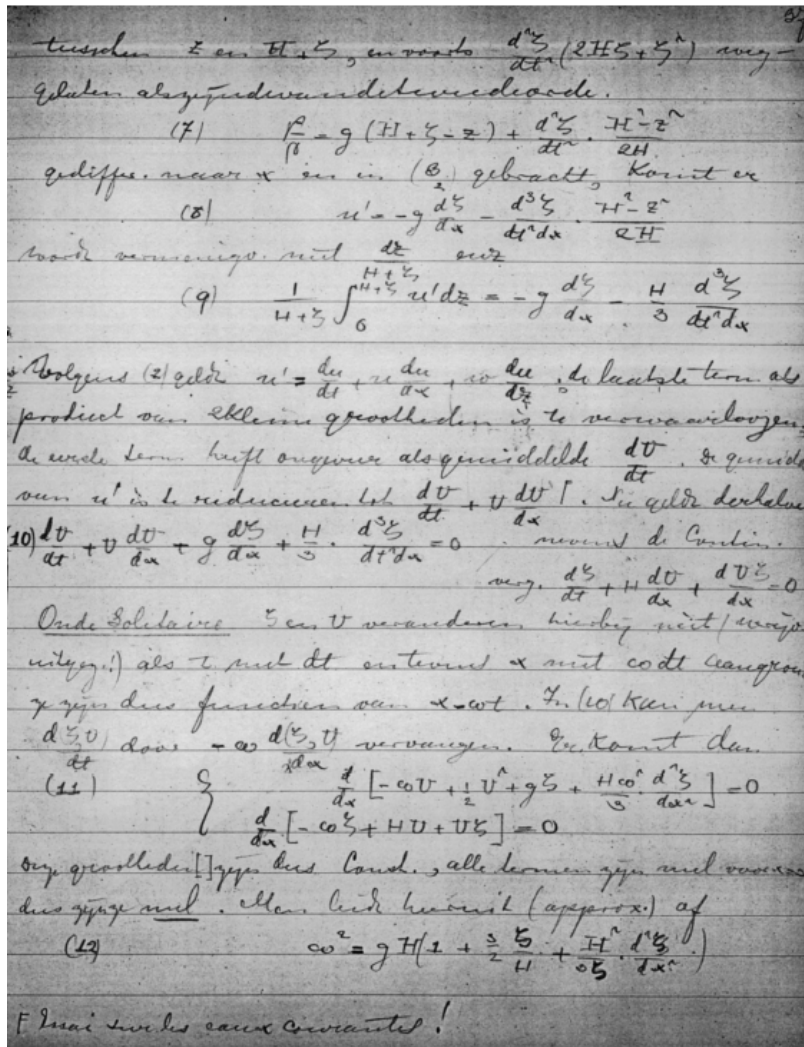 tusschen z en H+ζ, en voorts d²ζ/dt² (2Hζ + ζ²) weg-
gelaten als zijnde van de tweede orde.
(7) p/ρ = g (H + ζ - z) + d²ζ/dt² · H²-z²/2H
gediffer. naar x en in (8/2) gebracht, Komt er
(8) u' = -g dζ/dx - d³ζ/dt²dx · H²-z²/2H
wordt vermenigv. met dz/H+ζ enz
(9) 1/H+ζ ∫₀^H+ζ u'dz = -g dζ/dx - H/3 d³ζ/dt²dx
Volgens (2) geldt u' = du/dt + u du/dx + w du/dz, de laatste term als
product van 2 kleine grootheden is te verwaarloozen.
de eerste term heeft ongeveer als gemiddelde dU/dt. De gemidd
van u' is te reduceeren tot dU/dt + U dU/dx Γ. Nu geldt derhalve
(10) dU/dt + U dU/dx + g dζ/dx + H/3 · d³ζ/dt²dx = 0 nevens de Contin.
verg. dζ/dt + H dU/dx + dUζ/dx = 0
Onde Solitaire ζ en U veranderen hierbij niet
als t met dt en tevens x met ωdt
ze zijn dus functien van x-ωt. In (10) Kan men
d(ζ,U)/dt door -ω d(ζ,U)/dx vervangen. Er Komt dan
(11) { d/dx [-ωU + ½U² + gζ + Hω²/3 d²ζ/dx²] = 0
d/dx [-ωζ + HU + Uζ] = 0
grootheden [] zijn dus Const., alle termen zijn nul
dus zijn ze nul. Men leidt hieruit (approx.) af
(12) ω² = gH(1 + 3/2 ζ/H + H²/3ζ · d²ζ/dx²)
Γ Essai sur les eaux courantes!